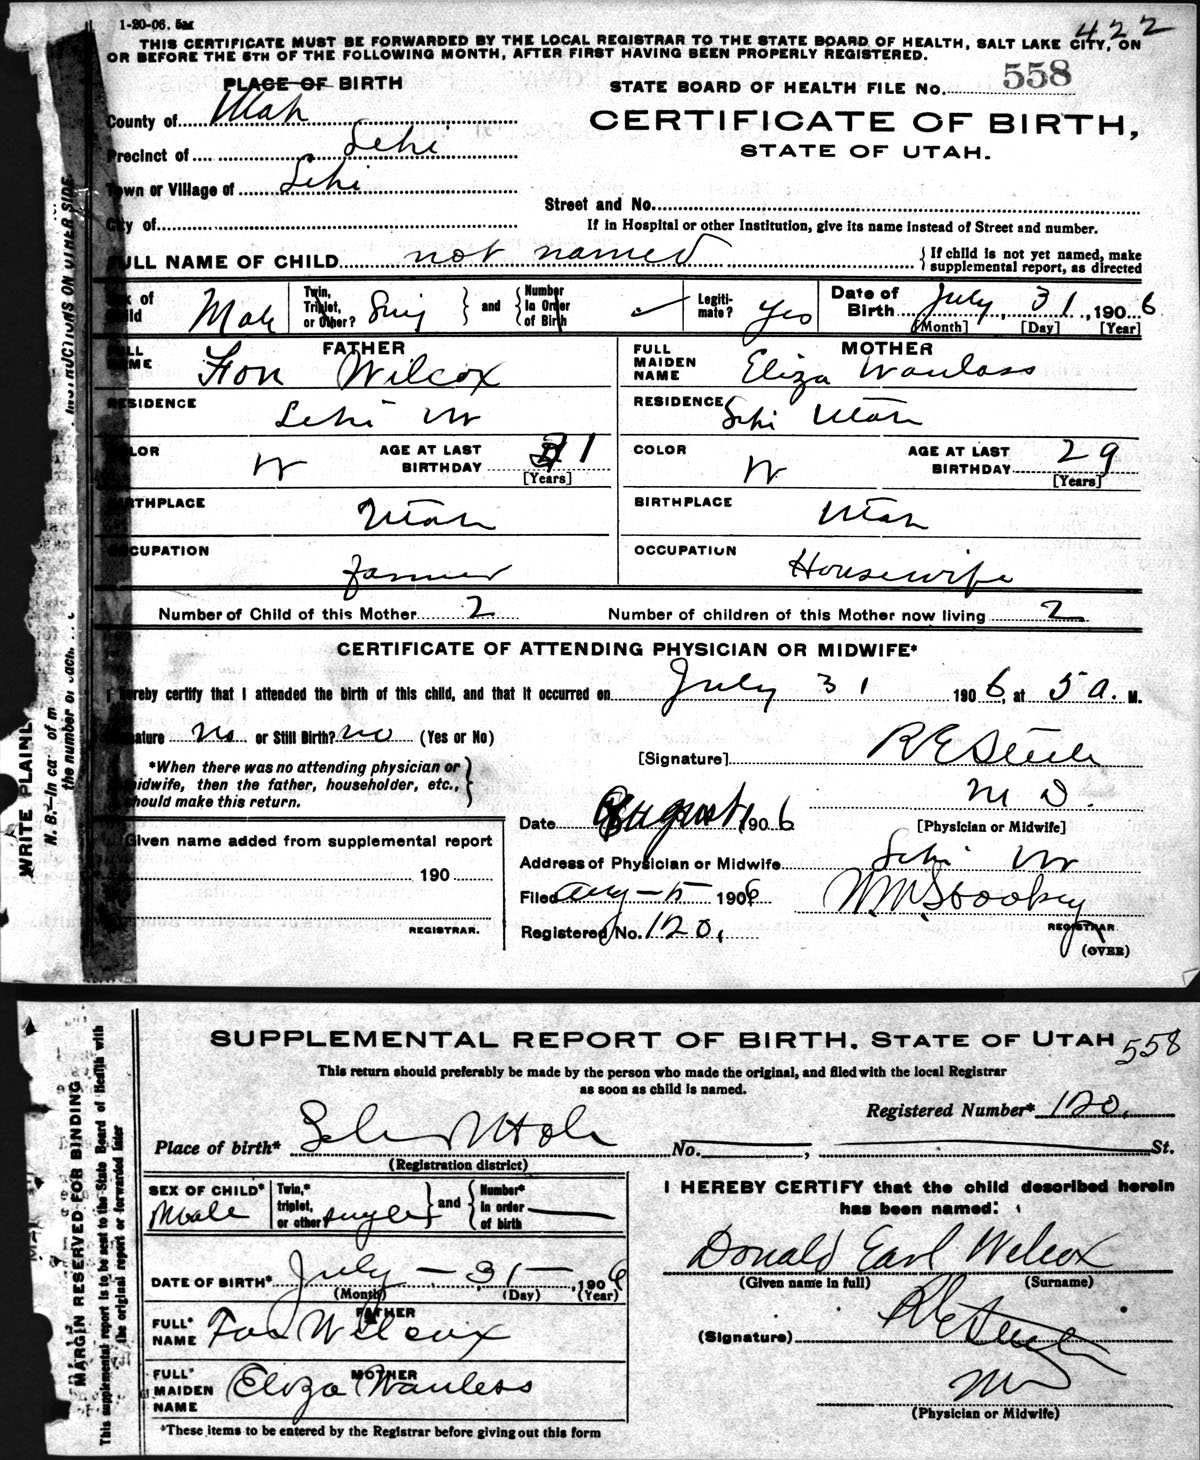 1-20-06. 5m
422
THIS CERTIFICATE MUST BE FORWARDED BY THE LOCAL REGISTRAR TO THE STATE BOARD OF HEALTH, SALT LAKE CITY, ON
OR BEFORE THE 5TH OF THE FOLLOWING MONTH, AFTER FIRST HAVING BEEN PROPERLY REGISTERED.
PLACE OF BIRTH
STATE BOARD OF HEALTH FILE No. 558
County of Utah
CERTIFICATE OF BIRTH,
STATE OF UTAH.
Precinct of Lehi
Town or Village of Lehi
Street and No.
City of
If in Hospital or other Institution, give its name instead of Street and number.
FULL NAME OF CHILD not named
{If child is not yet named, make supplemental report, as directed
Sex of Child Male Twin, Triplet, or Other? Sing } and { Number in Order of Birth Legiti- mate? yes Date of Birth July 31, 1906
[Month] [Day] [Year]
FATHER MOTHER
FULL NAME Fon Wilcox FULL MAIDEN NAME Eliza Wanlass
RESIDENCE Lehi Ut RESIDENCE Lehi Utah
COLOR W AGE AT LAST BIRTHDAY 31 [Years] COLOR W AGE AT LAST BIRTHDAY 29 [Years]
BIRTHPLACE Utah BIRTHPLACE Utah
OCCUPATION farmer OCCUPATION Housewife
Number of Child of this Mother 2 Number of children of this Mother now living 2
CERTIFICATE OF ATTENDING PHYSICIAN OR MIDWIFE*
I hereby certify that I attended the birth of this child, and that it occurred on July 31 1906, at 5 a. M.
mature no or Still Birth? no (Yes or No)
[Signature] R E Steele
*When there was no attending physician or
midwife, then the father, householder, etc.,
should make this return.
M D.
[Physician or Midwife]
Date August 1 1906
Given name added from supplemental report
190
REGISTRAR.
Address of Physician or Midwife Lehi Ut
Filed Aug - 5 1906 W.M. Stookey
REGISTRAR
Registered No. 120.
(OVER)
INSTRUCTIONS ON OTHER SIDE
WRITE PLAINL
N. B.-In ca of m
the number of each
SUPPLEMENTAL REPORT OF BIRTH, STATE OF UTAH 558
This return should preferably be made by the person who made the original, and filed with the local Registrar
as soon as child is named.
Registered Number* 120.
Place of birth* Lehi Utah No. , St.
(Registration district)
SEX OF CHILD* Male Twin,* triplet, or other single } and { Number* in order of birth
I HEREBY CERTIFY that the child described herein
has been named:
Donald Earl Wilcox
(Given name in full) (Surname)
DATE OF BIRTH* July - 31 - , 1906
(Month) (Day) (Year)
FATHER
FULL* NAME Fon Wilcox
(Signature) R E Steele
MOTHER
FULL* MAIDEN NAME Eliza Wanlass
MD
(Physician or Midwife)
*These items to be entered by the Registrar before giving out this form
MARGIN RESERVED FOR BINDING
This supplemental report is to be sent to the State Board of Health with
the original report or forwarded later